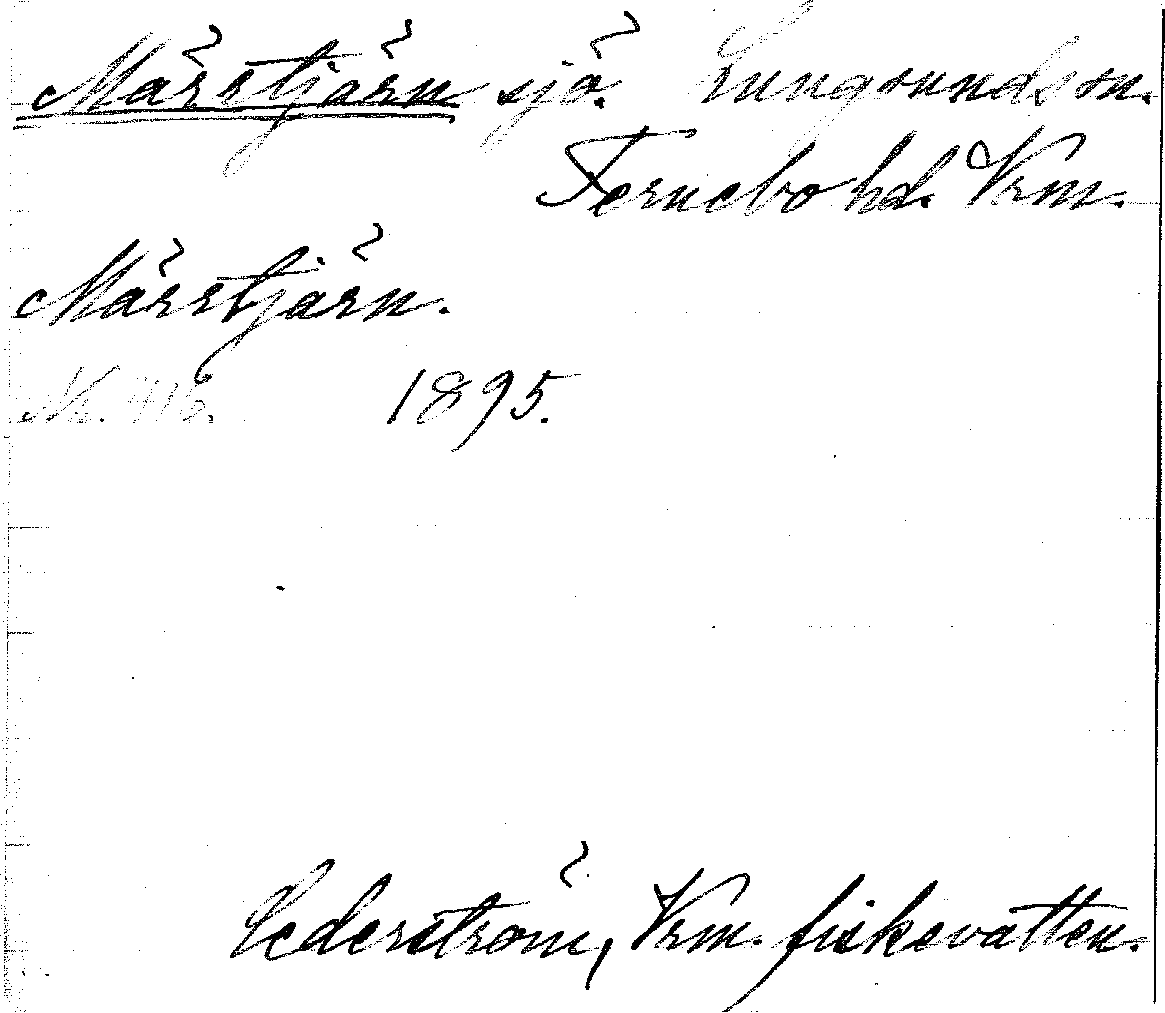 Märrtjärn sjö. Lungsunds sn.
Fernebo hd. Vrm.
Märrtjärn.
Nr. 416. 1895.
Cederström, Vrm. fiskevatten.